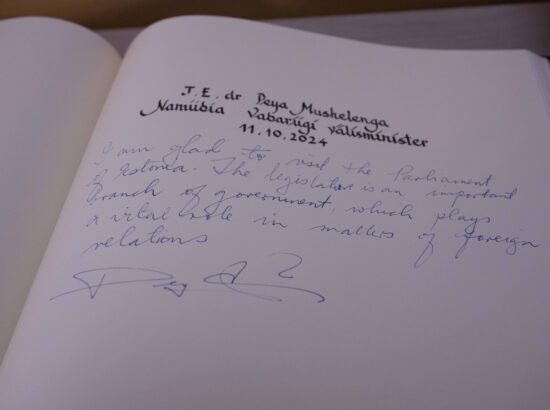 T.E. dr Peya Mushelenga
Namiibia Vabariigi välisminister
11.10.2024
I am glad to visit the Parliament
of Estonia. The legislature is an important
branch of government, which plays
a vital role in matters of foreign
relations